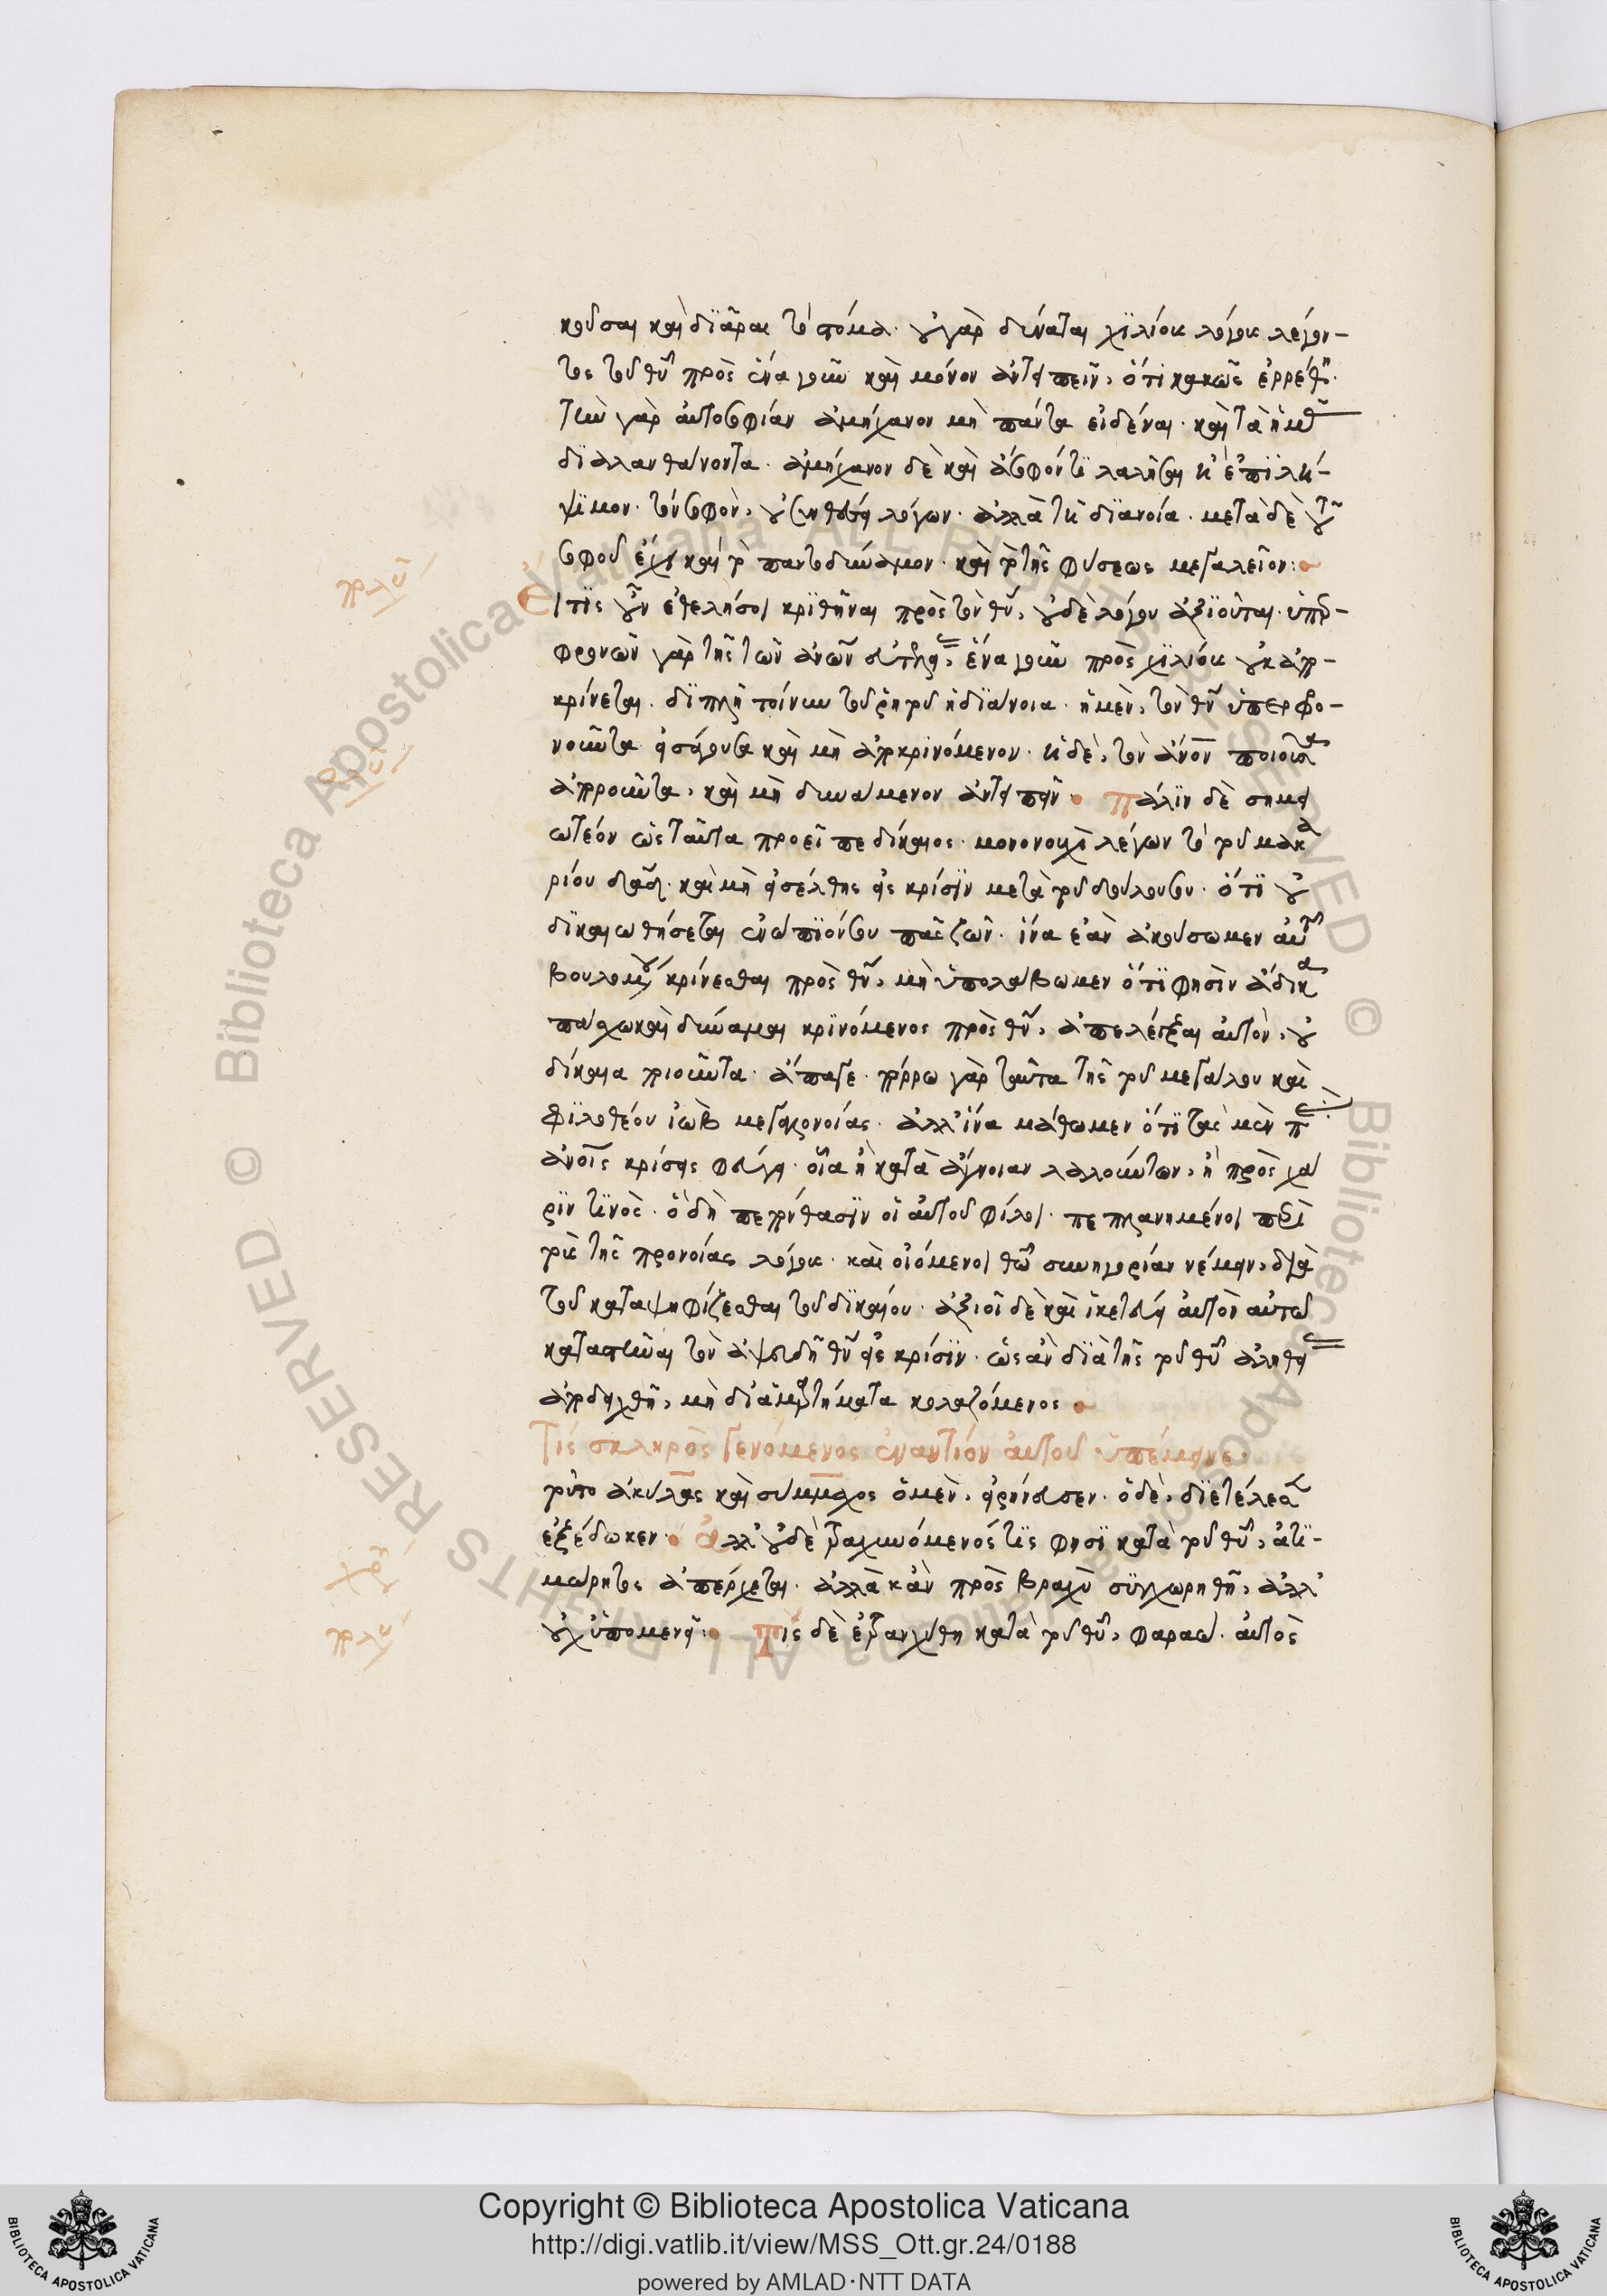 κοῦσαι καὶ διᾶραι τὸ στόμα. οὐ γὰρ δύναται χϊλίοις λόγοις λέγον-
τος τοῦ θῦ πρὸς ἕνα γοῦν καὶ μόνον ἀντειπεῖν, ὅτι κακῶς ἐρρέθη.
τὴν γὰρ αὐτοσοφίαν ἀμήχανον μὴ πάντα εἰδέναι. καὶ τὰ ἡμᾶς
διαλανθάνοντα. ἀμήχανον δὲ καὶ ἄσοφόν τι λαλῆσαι ἢ ἐπϊλή-
ψϊμον. τὸν σοφὸν, οὐ συνθέσει λόγων. ἀλλὰ τῆ διανοία. μετὰ δὲ τοῦ
σοφοῦ ἔχει καὶ τὸ παντοδύναμον. καὶ τὸ τῆς φύσεως μεγαλεῖον:
Εἴ τϊς οὖν ἐθελήσοι κρϊθῆναι πρὸς τὸν θν, οὐδὲ λόγου ἀξϊοῦται. ὑπερ-
φρονῶν γὰρ τῆς τῶν ἀνων εὐτελείας, ἕνα γοῦν πρὸς χϊλίους οὐκ ἀπο-
κρίνεται. διπλῆ τοίνυν τοῦ ῥητοῦ ἡ διάνοια. ἡ μὲν, τὸν θν ὑπερφρο-
νοῦντα εἰσάγουσα καὶ μὴ ἀποκρινόμενον. ἡ δὲ, τὸν ἄνον ποιοῦσα
ἀποροῦντα, καὶ μὴ δυνάμενον ἀντειπεῖν. πάλϊν δὲ σημει
ωτέον ὡς ταῦτα προεῖπε δίκαιος. μονονουχὶ λέγων τὸ τοῦ μακα
ρίου δαδ. καὶ μὴ εἰσέλθης εἰς κρίσϊν μετὰ τοῦ δούλου σου. ὅτϊ οὐ
δικαιωθήσεται ἐνώπϊόν σου πᾶς ζῶν. ἵνα ἐὰν ἀκούσωμεν αὐτοῦ
βουλομένου κρίνεσθαι πρὸς θν, μὴ ὑπολάβωμεν ὅτϊ φησὶν ἄδικα
πάσχω καὶ δύναμαι κρϊνόμενος πρὸς θν, ἀπελέγξαι αὐτὸν, οὐ
δίκαια ποιοῦντα. ἄπαγε. πόρρω γὰρ ταῦτα τῆς τοῦ μεγάλου καὶ
φϊλοθέου ἰὼβ μεγαλονοίας. ἀλλ' ἵνα μάθωμεν ὅτϊ τὰς μὲν π
ἀνοις κρίσεις φεύγει. οἷα ἢ κατὰ ἄγνοιαν λαλούντων, ἢ πρὸς χά
ρϊν τϊνὸς. ὃ δὴ πεπόνθασϊν οἱ αὐτοῦ φίλοι. πεπλανημένοι περὶ
τοὺς τῆς προνοίας λόγους. καὶ οἰόμενοι θῶ συνηγορίαν νέμειν, διὰ
τοῦ καταψηφίζεσθαι τοῦ δϊκαίου. ἀξιοῖ δὲ καὶ ἱκετεύει αὐτὸν αὐτῶ
καταστῆναι τὸν ἀψευδῆ θν εἰς κρίσϊν. ὡς ἂν διὰ τῆς τοῦ θῦ ἀληθείας
ἀποδειχθῆ, μὴ δι' ἁμαρτήματα κολαζόμενος
Τίς σκληρὸς γενόμενος ἐναντίον αὐτοῦ ὑπέμεινε,
τοῦτο ἀκύλας καὶ σύμμαχος ὁ μὲν, εἰρήνευσεν. ὁ δὲ, διετέλεσεν
ἐξέδωκεν. ἀλλ' οὐδὲ τραχυνόμενός τϊς φησὶ κατὰ τοῦ θῦ, ἀτϊ-
μώρητος ἀπέρχεται. ἀλλὰ κἂν πρὸς βραχὺ συγχωρηθῆ, ἀλλ'
οὐχ ὑπομενεῖ: τίς δὲ ἐτραχύνθη κατὰ τοῦ θῦ, φαραώ. αὐτὸς
Copyright © Biblioteca Apostolica Vaticana
http://digi.vatlib.it/view/MSS_Ott.gr.24/0188
powered by AMLAD·NTT DATA